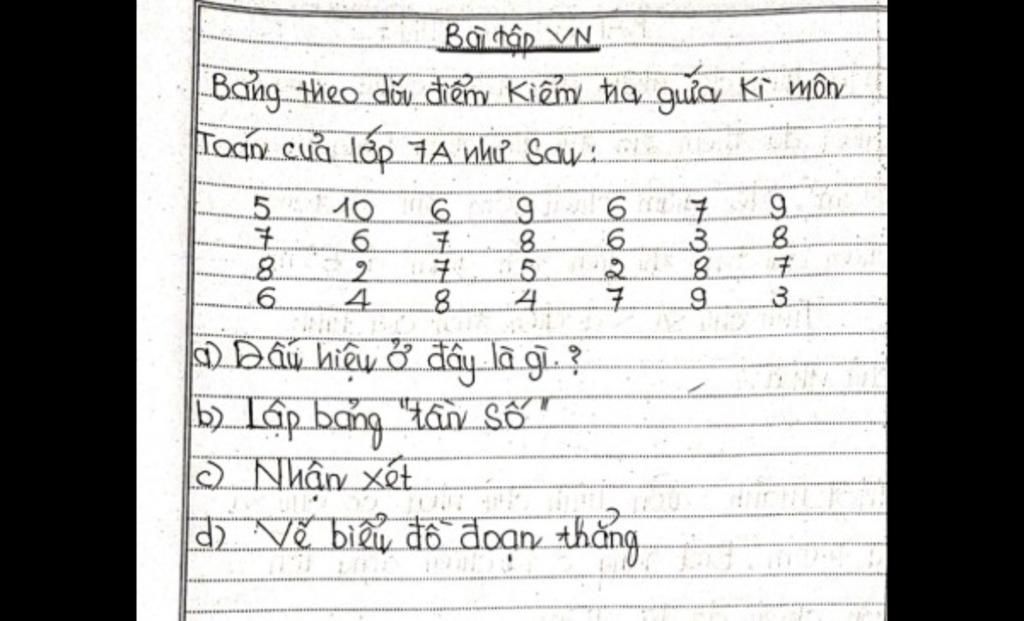 Bài tập VN
Bảng theo dõi điểm Kiểm tra giữa Kì môn
Toán của lớp 7A như Sau:
5 10 6 9 6 7 9
7 6 7 8 6 3 8
8 2 7 5 2 8 7
6 4 8 4 7 9 3
a) Dấu hiệu ở đây là gì.?
b) Lập bảng "tần số"
c) Nhận xét
d) Vẽ biểu đồ đoạn thẳng